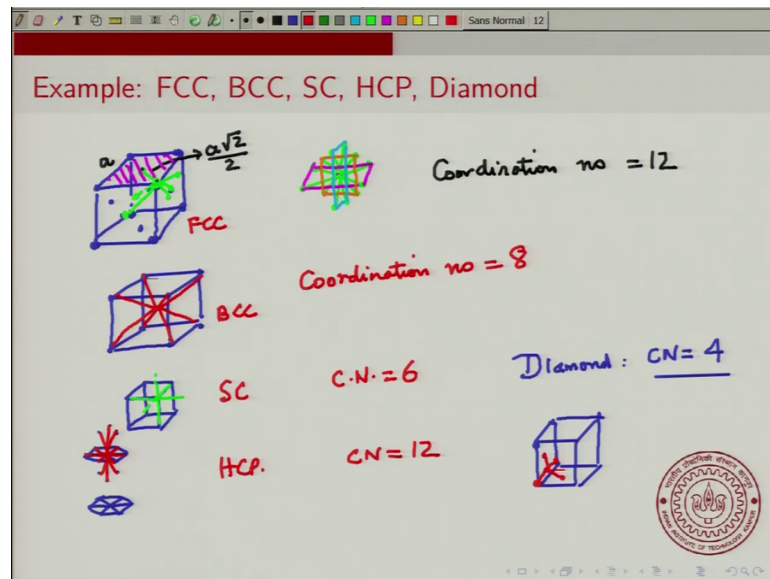 Sans Normal 12
Example: FCC, BCC, SC, HCP, Diamond
a
a√2/2
Coordination no = 12
FCC
Coordination no = 8
BCC
Diamond : CN = 4
SC
C.N. = 6
HCP.
CN = 12
भारतीय प्रौद्योगिकी संस्थान कानपुर
INDIAN INSTITUTE OF TECHNOLOGY KANPUR